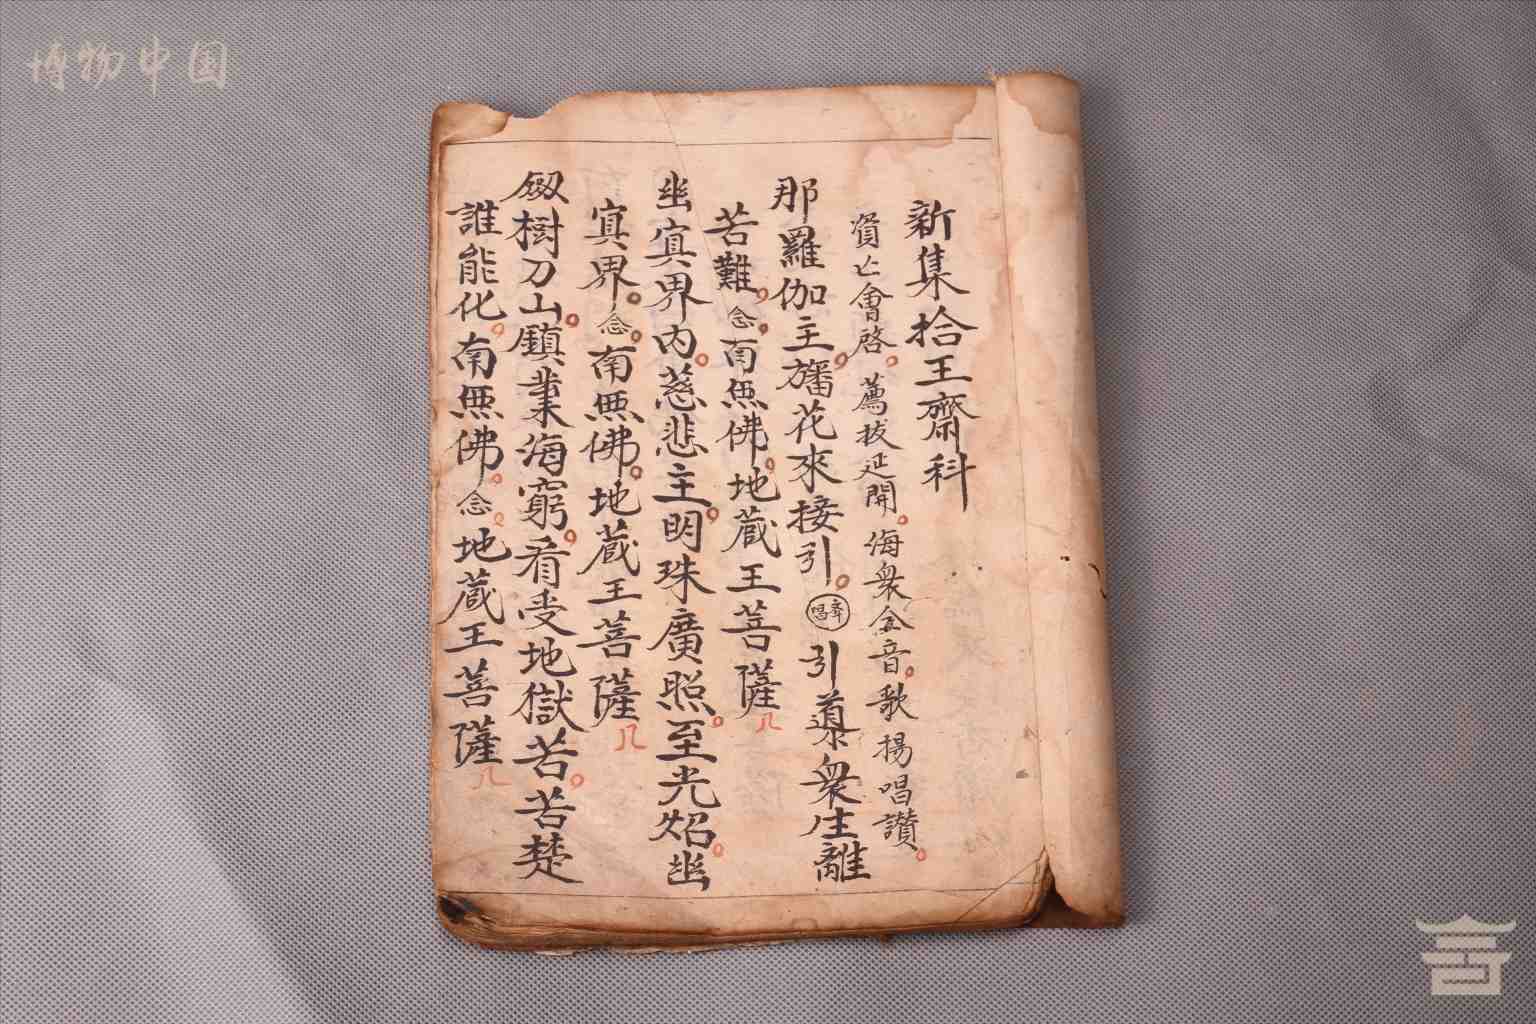 博物中国
新集拾王齋科
資亡會啓。薦拔延開。海衆仝音。歌揚唱讃。
那羅伽主。旛花來接引。齊唱引導衆生離
苦難。念。南無佛。地蔵王菩薩
幽冥界內。慈悲主。明珠廣照。至光焰。幽
冥界。念。南無佛。地蔵王菩薩
劔樹刀山。鎮業海窮。看受地獄苦。苦楚
誰能化。南無佛。念。地蔵王菩薩